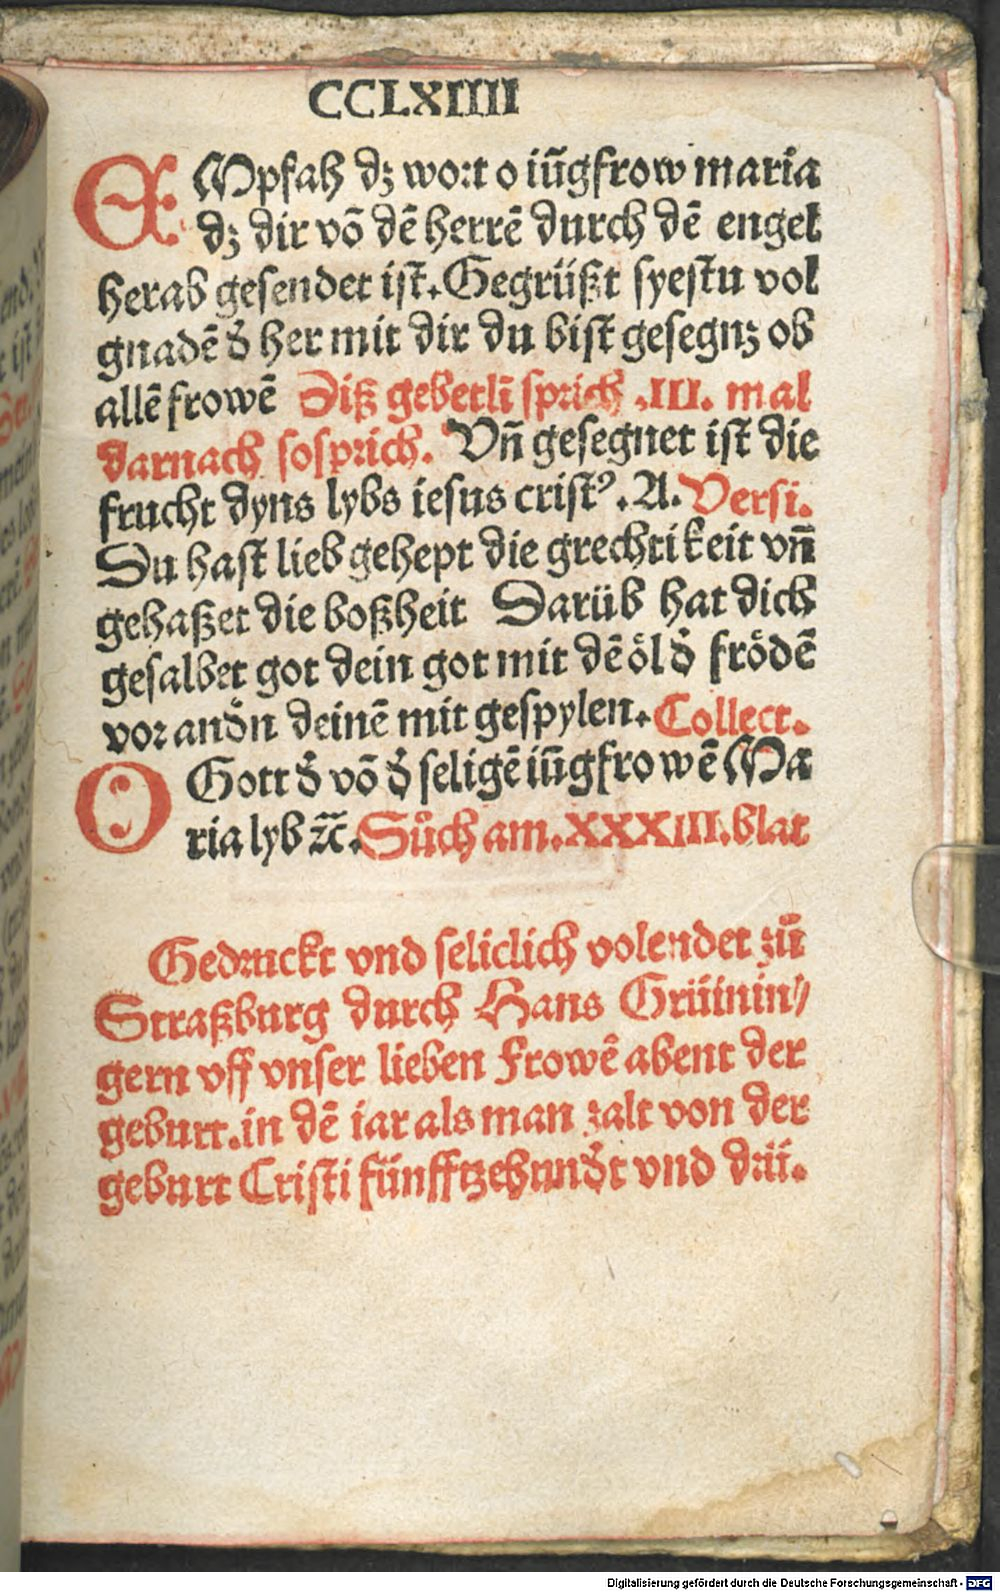 CCLXIIII
EMpfah dz wort o iũgfrow maria
dz dir võ dẽ herrẽ durch dẽ engel
herab gesendet ist. Gegrüßt syestu vol
gnadẽ d̕ her mit dir du bist gesegnz ob
allẽ frowẽ Diß gebetlĩ sprich .III. mal
darnach so sprich. Vñ gesegnet ist die
frucht dyns lybs iesus crist⁹. A. Versi.
Du hast lieb gehept die grechtikeit vñ
gehaßet die boßheit Darüb hat dich
gesalbet got dein got mit dẽ öl d̕ frödẽ
vor and̕n deinẽ mit gespylen. Collect.
O Gott d̕ võ d̕ seligẽ iũgfrowẽ Ma
ria lyb ⁊c̄. Sůch am .XXXIII. blat
Gedruckt vnd seliclich volendet zů
Straßburg durch Hans Grüinin⸗
gern vff vnser lieben Frowẽ abent der
geburt. in dẽ iar als man zalt von der
geburt Cristi fünfftzehund̕t vnd drü.
Digitalisierung gefördert durch die Deutsche Forschungsgemeinschaft - DFG